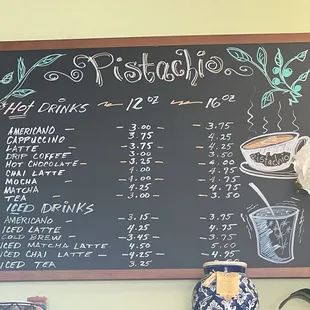 Pistachio
Hot DRINKS 12 oz 16 oz
AMERICANO - 3.00 - 3.75
CAPPUCCINO - 3.75 - 4.25
LATTE - 3.75 - 4.25
DRIP COFFEE - 3.00 - 3.50
HOT CHOCOLATE - 3.25 - 4.00
CHAI LATTE - 4.00 - 4.75
MOCHA - 4.00 - 4.75
MATCHA - 4.25 - 4.75
TEA - 3.00 - 3.50
ICED DRINKS
AMERICANO - 3.15 - 3.75
ICED LATTE - 4.25 - 4.75
COLD BREW - 3.45 - 3.75
ICED MATCHA LATTE - 4.50 5.00
ICED CHAI LATTE - 4.25 - 4.75
ICED TEA 3.25
Pistachio